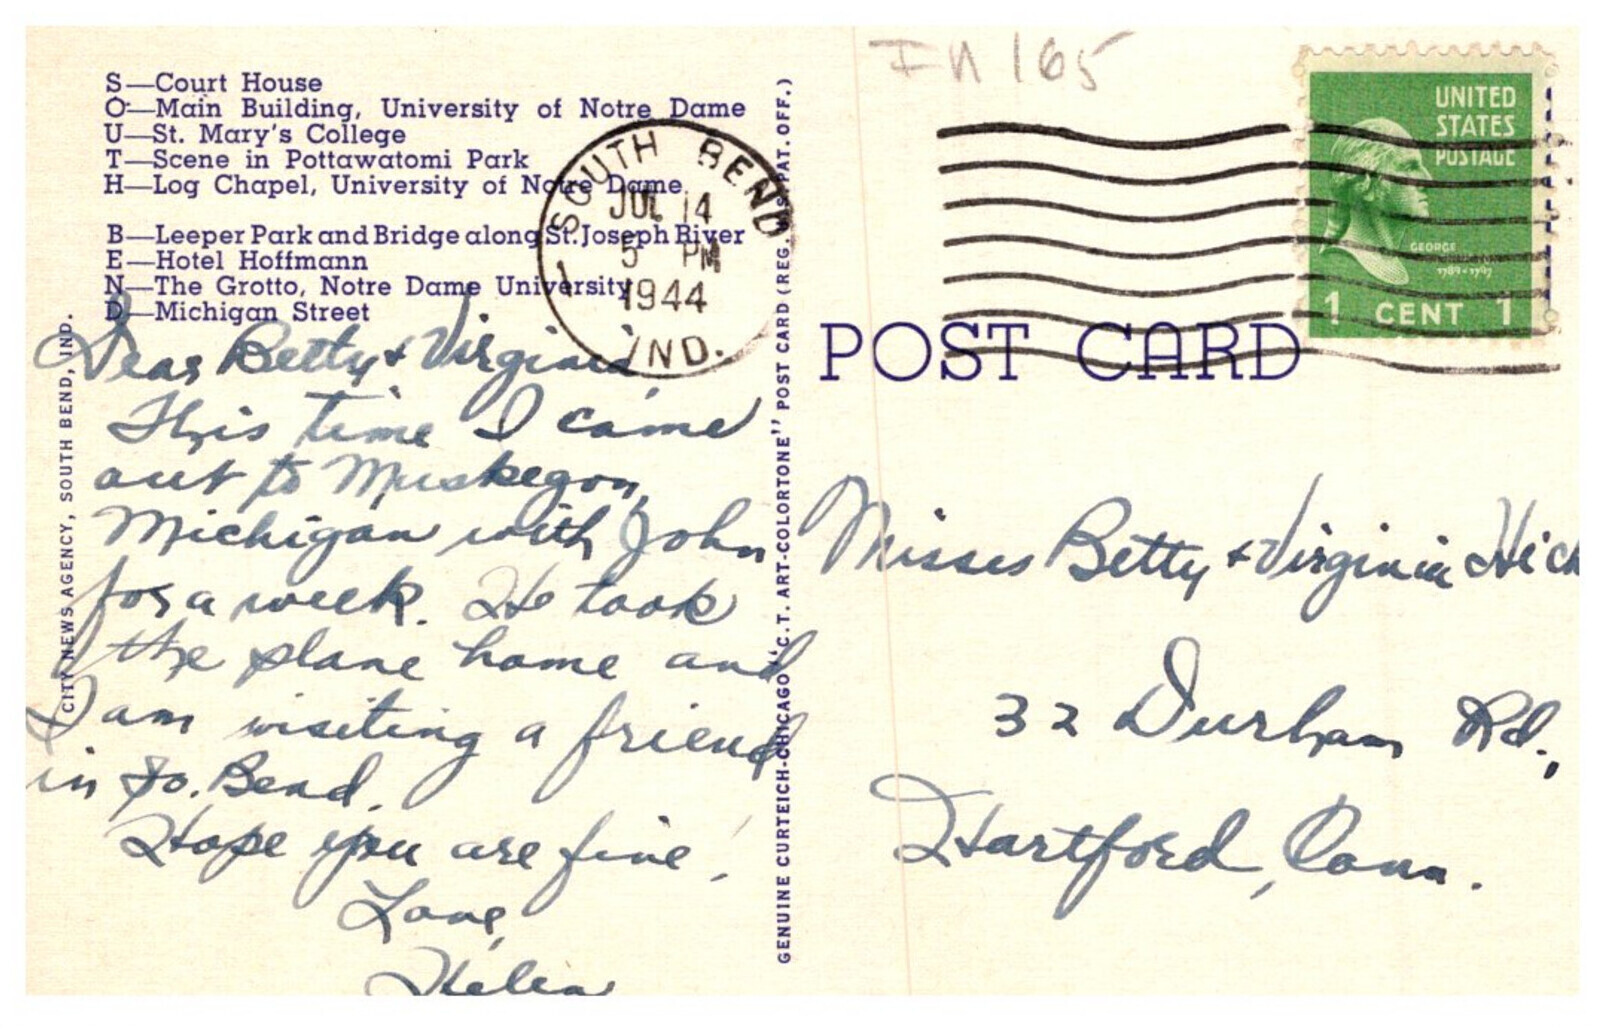 IN 165
S—Court House
O—Main Building, University of Notre Dame
U—St. Mary's College
T—Scene in Pottawatomi Park
H—Log Chapel, University of Notre Dame
B—Leeper Park and Bridge along St. Joseph River
E—Hotel Hoffmann
N—The Grotto, Notre Dame University
D—Michigan Street
CITY NEWS AGENCY, SOUTH BEND, IND.
SOUTH BEND
JUL 14
5 PM
1944
1
IND.
GENUINE CURTEICH-CHICAGO "C.T. ART-COLORTONE" POST CARD (REG. U.S. PAT. OFF.)
UNITED
STATES
POSTAGE
GEORGE
1789-1797
1 CENT 1
POST CARD
Dear Betty & Virginia
This time I came
out to Muskegon,
Michigan with John
for a week. He took
the plane home and
I am visiting a friend
in So. Bend.
Hope you are fine.
Love,
Helen
Misses Betty & Virginia Hick
32 Durham Rd.,
Hartford, Conn.